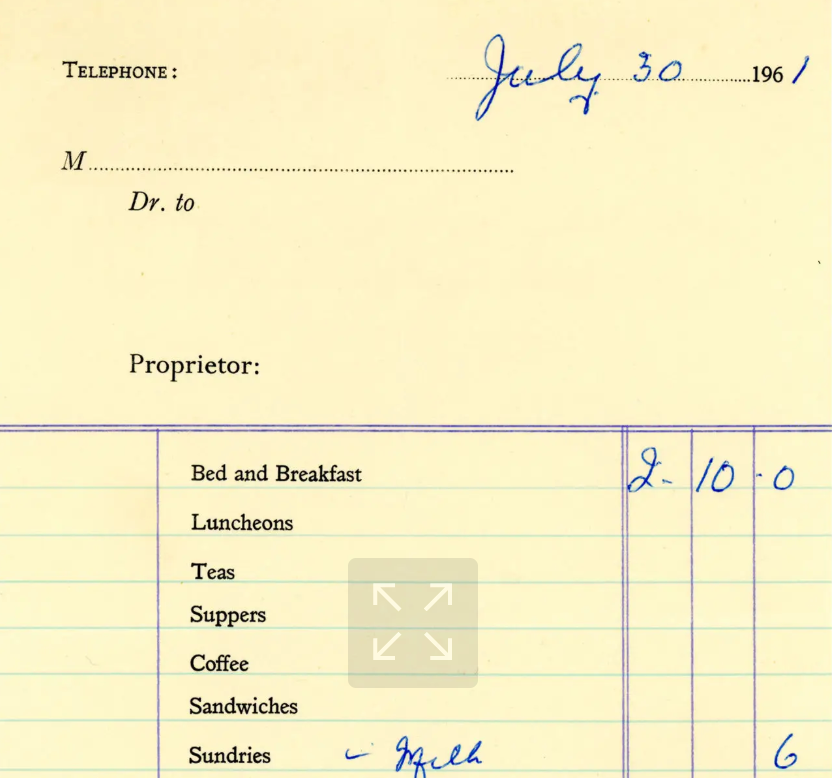 TELEPHONE: July 30 1961
M
Dr. to
Proprietor:
Bed and Breakfast 2 - 10 - 0
Luncheons
Teas
Suppers
Coffee
Sandwiches
Sundries - Milk 6